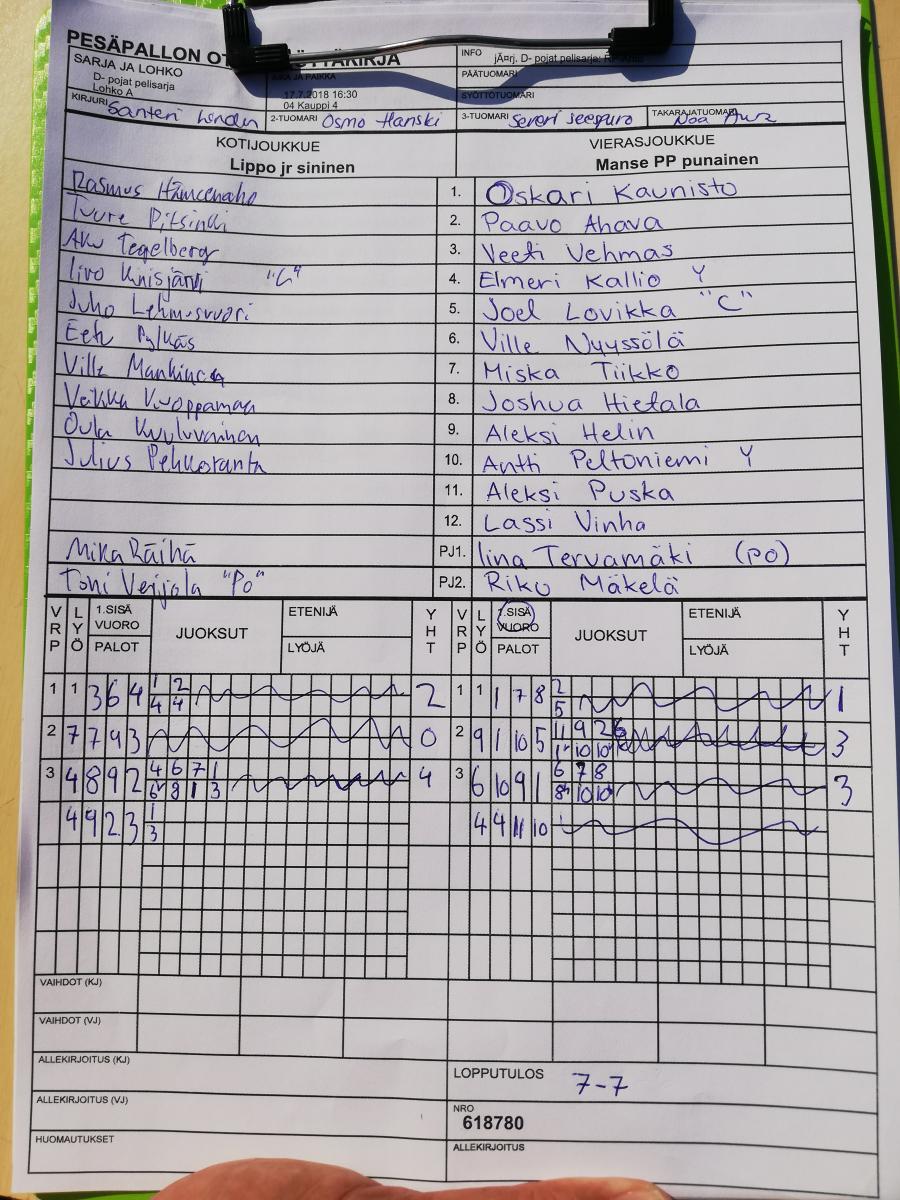 PESÄPALLON
SARJA JA LOHKO
D- pojat pelisarja
Lohko A
AIKA JA PAIKKA
17.7.2018 16:30
04 Kauppi 4
INFO
D- pojat pelisarja:
PÄÄTUOMARI
SYÖTTÖTUOMARI
KIRJURI Santeri
2-TUOMARI Osmo Hanski
3-TUOMARI Severi Seespuro
TAKARAJATUOMARI Noa
KOTIJOUKKUE
Lippo jr sininen
VIERASJOUKKUE
Manse PP punainen
Rasmus 1. Oskari Kaunisto
Tuure 2. Paavo Ahava
Aku Tegelberg 3. Veeti Vehmas
Iivo "C" 4. Elmeri Kallio Y
Juho Lehmusvuori 5. Joel Lovikka "C"
Eetu Pylkäs 6. Ville Nyyssölä
Ville 7. Miska Tiikko
Veikka Vuoppamaa 8. Joshua Hietala
Oula Kuuluvainen 9. Aleksi Helin
Julius Pehkoranta 10. Antti Peltoniemi Y
11. Aleksi Puska
12. Lassi Vinha
Mika Räihä PJ1. Iina Tervamäki (po)
Toni Veijola "Po" PJ2. Riku Mäkelä
VRP LYÖ 1.SISÄ VUORO PALOT JUOKSUT ETENIJÄ LYÖJÄ YHT
VRP LYÖ 1.SISÄ VUORO PALOT JUOKSUT ETENIJÄ LYÖJÄ YHT
1 1 3 6 4 1 2 2 1 1 1 7 8 2 1
4 4 5
2 7 7 9 3 0 2 9 1 10 5 11 9 2 6 3
10 10
3 4 8 9 2 4 6 7 1 4 3 6 10 9 1 6 7 8 3
8 1 3 8 10 10
4 9 2 3 1 4 4 11 10
3
VAIHDOT (KJ)
VAIHDOT (VJ)
ALLEKIRJOITUS (KJ)
LOPPUTULOS 7-7
ALLEKIRJOITUS (VJ)
NRO
618780
HUOMAUTUKSET
ALLEKIRJOITUS